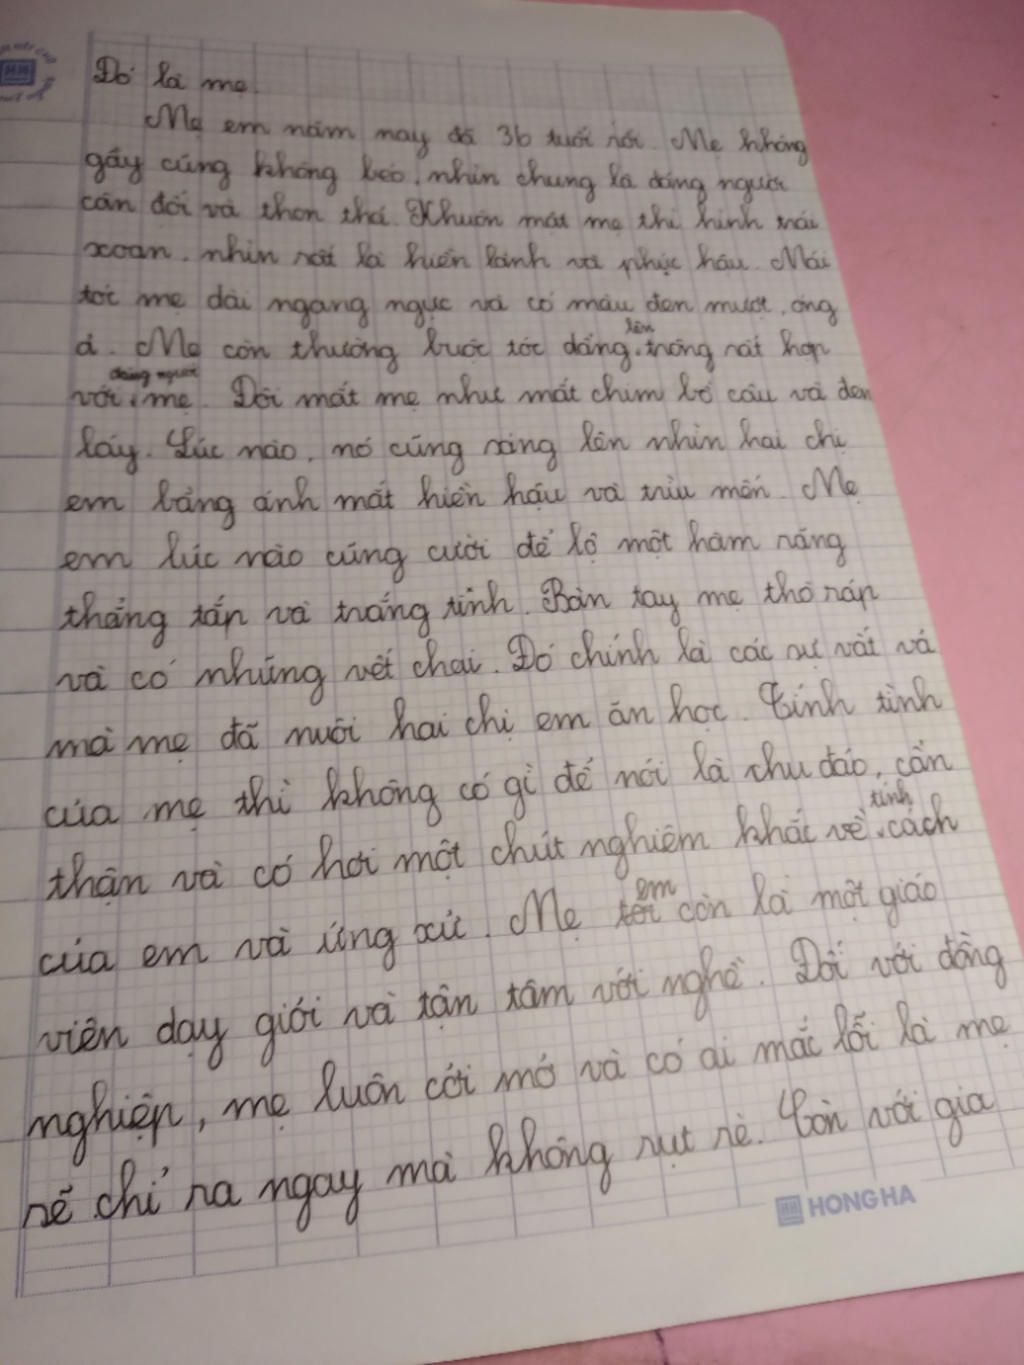 Đó là mẹ.
Mẹ em năm nay đã 36 tuổi rồi. Mẹ không
gầy cũng không béo, nhìn chung là dáng người
cân đối và thon thả. Khuôn mặt mẹ thì hình trái
xoan, nhìn rất là hiền lành và phúc hậu. Mái
tóc mẹ dài ngang ngực và có màu đen mượt, óng
ả. Mẹ còn thường buộc tóc đấng lên, trông rất hợp
với dáng người mẹ. Đôi mắt mẹ như mắt chim bồ câu và đen
láy. Lúc nào, nó cũng sáng lên nhìn hai chị
em bằng ánh mắt hiền hậu và trìu mến. Mẹ
em lúc nào cũng cười để lộ một hàm răng
thẳng tắp và trắng tinh. Bàn tay mẹ thô ráp
và có những vết chai. Đó chính là các sự vất vả
mà mẹ đã nuôi hai chị em ăn học. Tính tình
của mẹ thì không có gì để nói là chu đáo, cẩn
thận và có hơi một chút nghiêm khắc về tính cách
của em và ứng xử. Mẹ em còn là một giáo
viên dạy giỏi và tận tâm với nghề. Đối với đồng
nghiệp, mẹ luôn cởi mở và có ai mắc lỗi là mẹ
sẽ chỉ ra ngay mà không rụt rè. Còn với gia
HONG HA